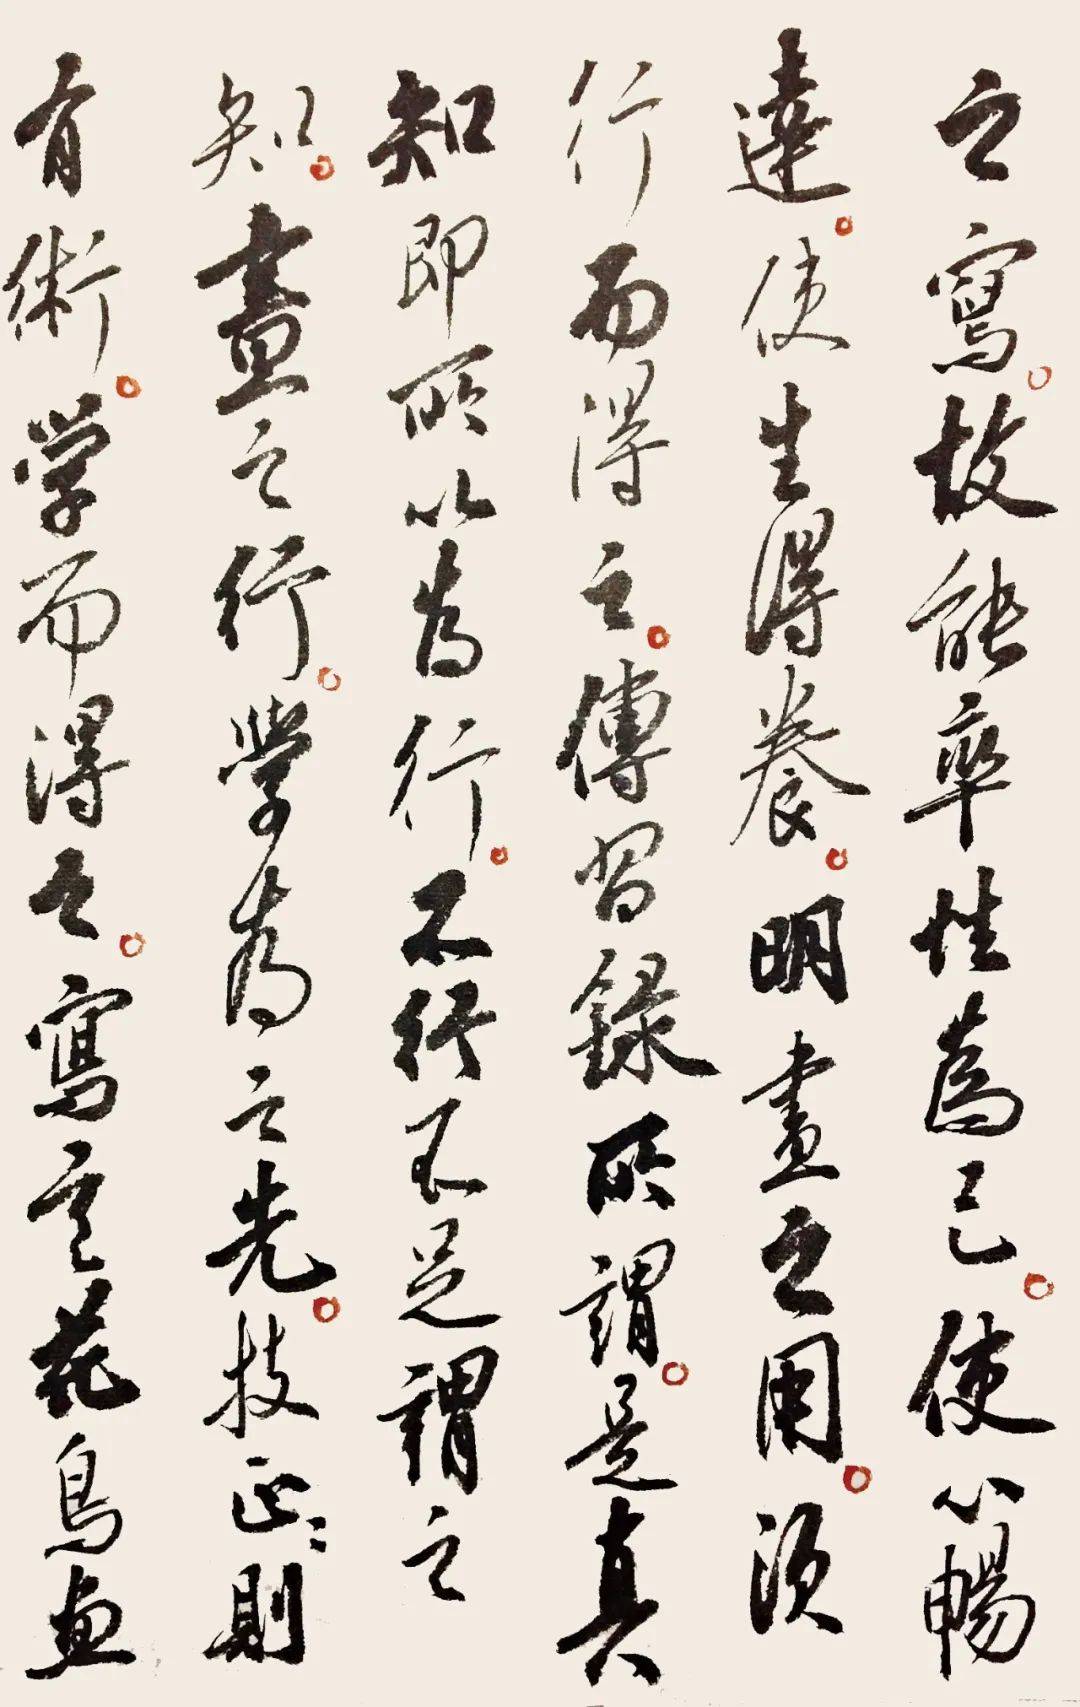 之寫。故能率性為己。使心暢
達。使生得養。明畫之用。須
行而得之。傳習錄所謂。是真
知即所以為行。不行不足謂之
知。畫之行。學為之先。技正々則
有術。學而得之。寫意花鳥畫